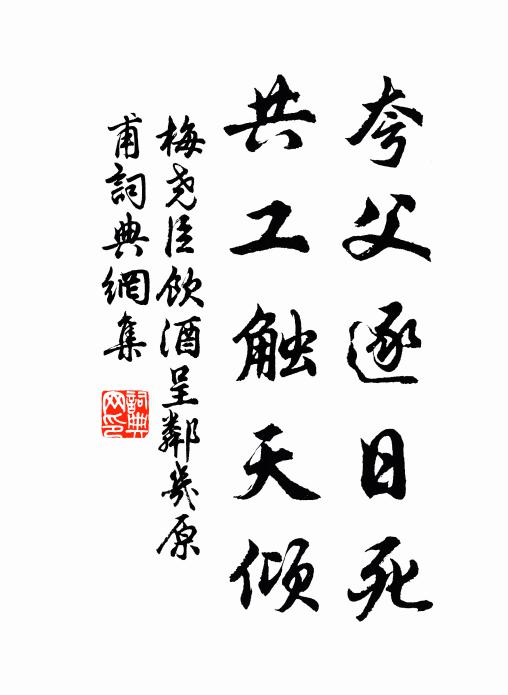 夸父逐日死
共工触天倾
梅尧臣飲酒呈鄰幾原
甫詞典網集
詞典
网印